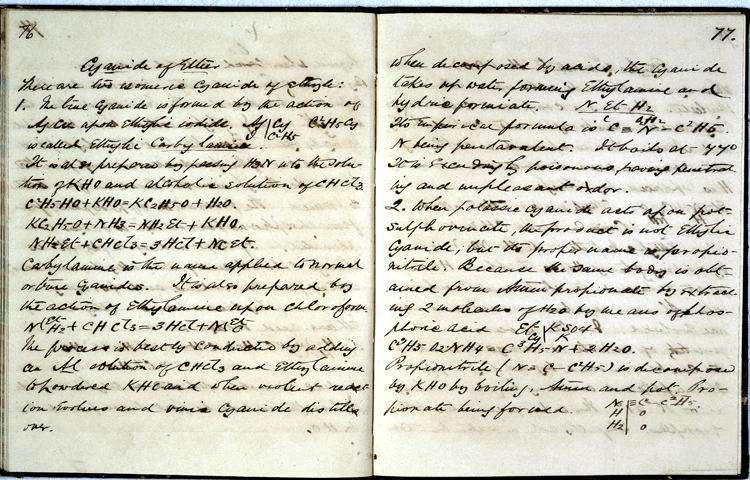 76
Cyanide of Ether
There are two isomeric Cyanide of ethyle:
1. The true Cyanide is formed by the action of
AgCN upon Ethylic iodide. Ag | Cy C²H⁵Cy
I | C²H⁵
is called Ethylic Carbylamine.
It is also prepared by passing H3N into the solu-
tion of KHO and alcoholic solution of CHCl3
C²H5HO+KHO=KC2H5O+H2O.
KC2H5O+NH3=NH2Et+KHO.
NH2Et+CHCl3=3HCl+NCEt.
Carbylamine is the name applied to normal
or true Cyanides. It is also prepared by
the action of Ethylamine upon Chloroform.
N(Et H2+CHCl3=3HCl+N(Et C
The process is bestly conducted by adding
an Al solution of CHCl3 and Ethylamine
to powdered KHO and when violent reac-
tion Evolves and vinic Cyanide distills
over.
77.
When decomposed by acids, the Cyanide
takes up water forming Ethylamine and
hydric formiate. N Et H2
Its Empirical formula is C=N-C²H5.
N being pentavalent. It boils at 77°
It is Exceedingly poisonous, having penetrat
ing and unpleasant odor.
2. When potassic cyanide acts upon pot-
sulphovinate, the product is not Ethylic
Cyanide, but its proper name is propio-
nitrile. Because the same body is obt-
ained from Amm propionate by extract
ing 2 molecules of H2O by means of phos-
phoric acid Et K SO4
Cy K
C³H5O2NH4=C³H5N+2H2O.
Propionitrile (N≡C-C²H5) is decomposed
by KHO by boiling, Amm and pot. Pro-
pionate being formed. N≡C-C²H5.
H O
H2 O